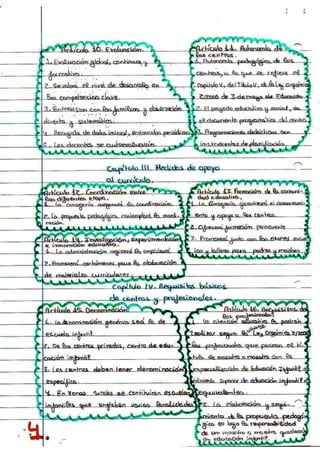 Artículo 10. Evaluación.
1. Evaluación global, continua y
formativa.
2. Se valora el nivel de desarrollo en
las competencias clave.
3. Entrevistas con las familias y observación
directa y sistemática.
4. Recogida de datos inicial, entrevistas periódicas
5. Los docentes se autoevaluarán.
Artículo 11. Autonomía de
los centros.
1. Autonomía pedagógica de los
centros, a la que se refiere el
Capítulo V, del Título V, de la Ley orgánica
2/2006 de 3 de mayo de Educación.
2. El proyecto educativo y social, es
el documento programático del centro.
3. Programaciones didácticas son
instrumentos de planificación.
Capítulo III. Medidas de apoyo
al currículo.
Artículo 12. Coordinación entre
las diferentes etapas.
1. la consejería regional la coordinación.
2. la propuesta pedagógica, contemplará la coordi-
nación.
Artículo 13. Formación de la comuni-
dad educativa.
1. La Consejería garantizará el asesoramiento
y apoyo a los centros.
2. Ofrecerá formación permanente
3. Promoverá junto con los centros
y talleres para padres y madres
Artículo 14. Investigación, experimentación
e innovación educativa.
1. La administración regional la impulsará.
2. Promoverá certámenes para la elaboración
de materiales curriculares.
Capítulo IV. Requisitos básicos
de centros y profesionales.
Artículo 15. Denominación.
1. la denominación genérica será la de
escuela infantil.
2. De los centros privados, centro de edu-
cación infantil.
3. Los centros deben tener denominación
específica.
4. En zonas rurales se constituirán escuelas
infantiles que engloben varias localidades
Artículo 16. Requisitos de
los profesionales.
1. la atención educativa la podrán
realizar según la Ley Orgánica 2/2006
los profesionales que posean el tí-
tulo de maestro o maestra con la
especialización de Educación Infantil
Superior de educación infantil o
equivalentes.
2. la elaboración y segui-
miento de la propuesta pedagó-
gica es bajo la responsabilidad
de un maestro o maestra
en educación infantil.
4.